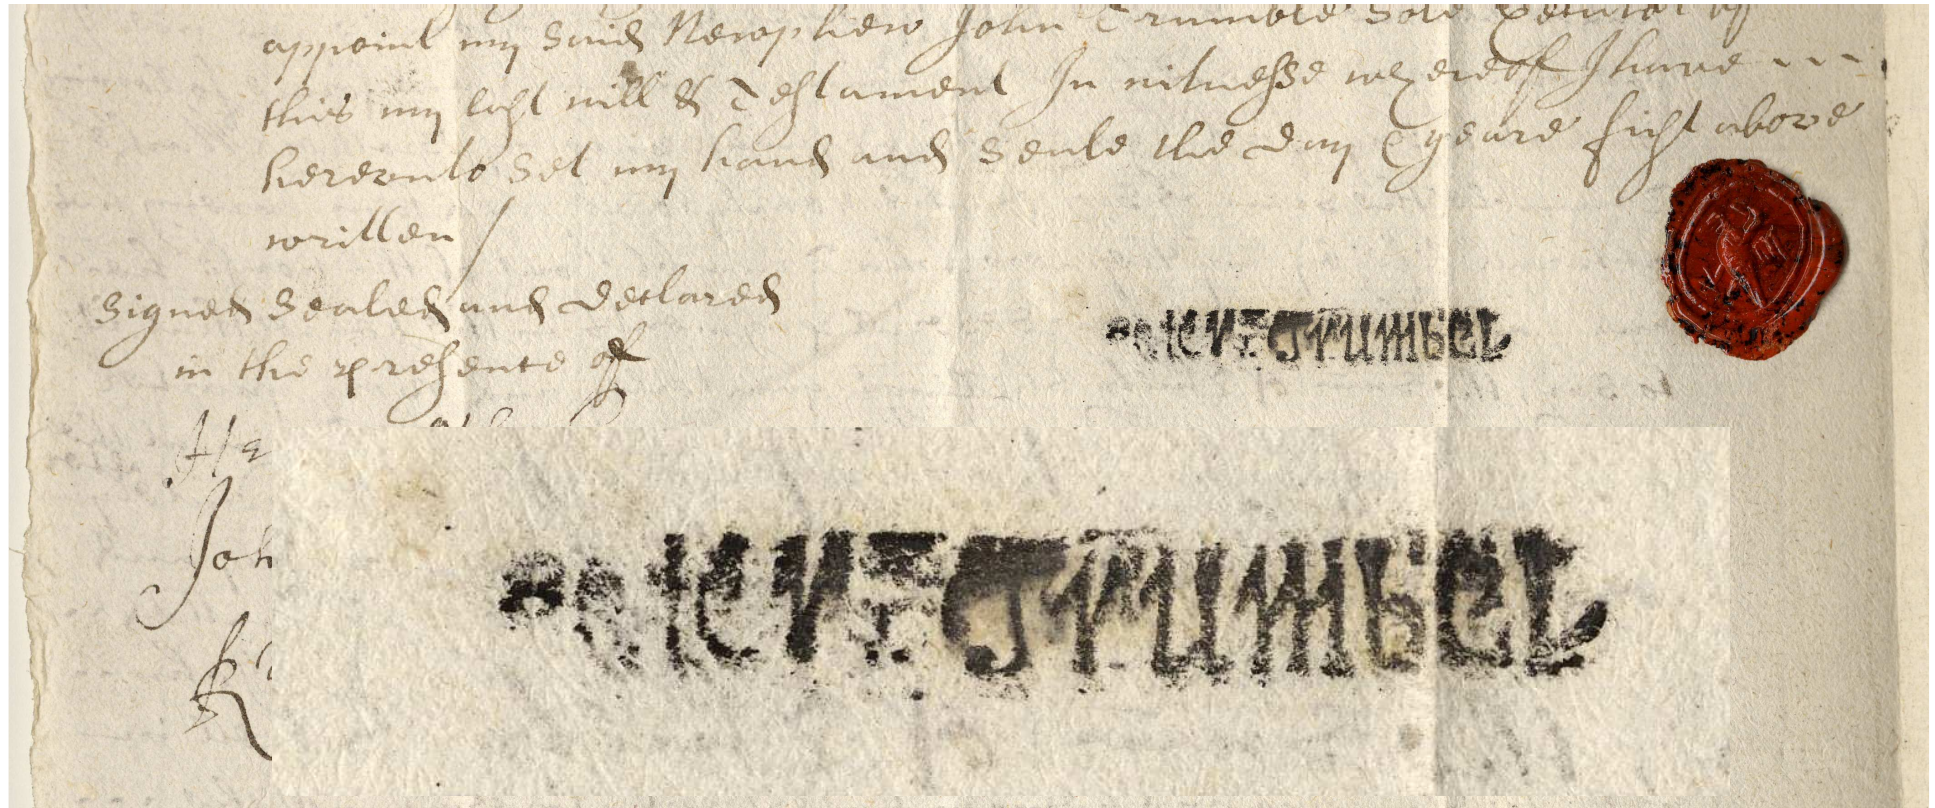 appoint my said Newphew John Trumble Sole Executor of
this my last will & Testament In witnesse whereof I have ---
hereunto set my hand and seale the day & yeare first above
written /
Signed Sealed and declared
in the presence of
Trumbel
He
Joh
Trumbel